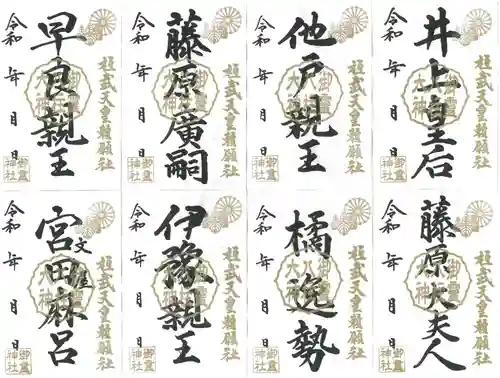 桓武天皇勅願社
井上皇后
令和 年 月 日
御霊神社
桓武天皇勅願社
他戸親王
令和 年 月 日
御霊神社
桓武天皇勅願社
藤原廣嗣
令和 年 月 日
御霊神社
桓武天皇勅願社
早良親王
令和 年 月 日
御霊神社
桓武天皇勅願社
藤原大夫人
令和 年 月 日
御霊神社
桓武天皇勅願社
橘逸勢
令和 年 月 日
御霊神社
桓武天皇勅願社
伊豫親王
令和 年 月 日
御霊神社
桓武天皇勅願社
文屋宮田麻呂
令和 年 月 日
御霊神社